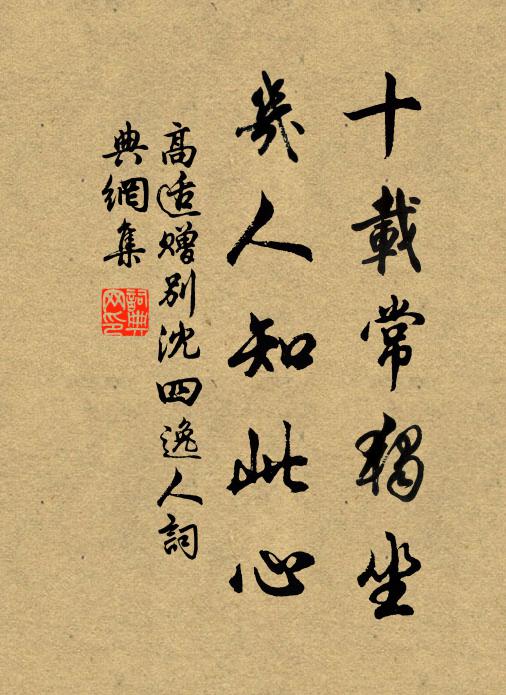 十載常獨坐
幾人知此心
高适贈別沈四逸人詞
典網集
詞典網印